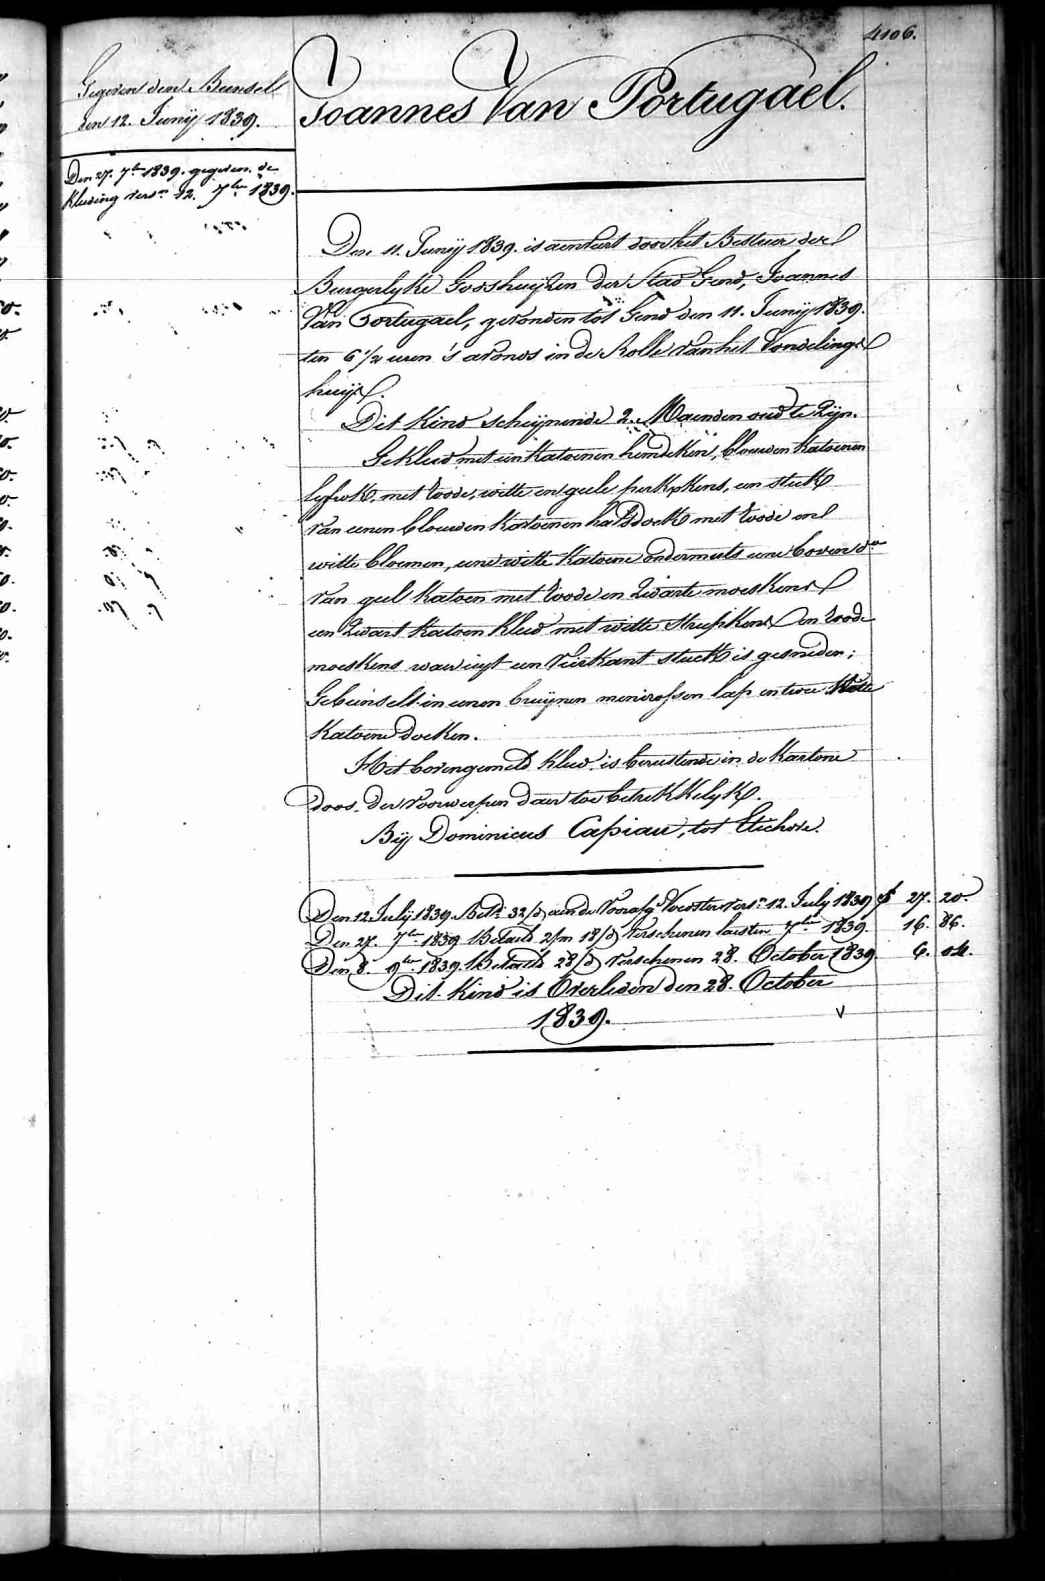 4106.
Gegeven den Bunsell
den 12. Junij 1839.
Den 27. 7ber 1839. gegeven de
kleeding vers.n 12. 7ber 1839.
Joannes Van Portugael.
Den 11. Junij 1839. is aenveert door het Bestuer der
Burgerlyke Godshuijzen der Stad Gend, Joannes
Van Portugael, gevonden tot Gend den 11. Junij 1839.
ten 6 1/2 uren 's avonds in de Rolle van het Vondelings
huijs.
Dit Kind schijnende 2. Maenden oud te Zijn.
Gekleed met een Katoenen hemdeken, blauwen Katoenen
lyfrok, met roode, witte en geele perkskens, een stuk
van eenen blauwen Katoenen halsdoek met roode en
witte bloemen, eene witte Katoene ondermuts eene boven do
van geel Katoen met roode en Zwarte moeskens
een Zwart Katoen Kleed met witte Streepkens en roode
moeskens waer uyt een Vierkant stuk is gesneden;
Gebunselt in eenen bruijnen lap en twee witte
Katoene doeken.
Het bovengemeld Kleed is berustende in de Kartone
doos der voorwerpen daer toe betrekkelyk.
Bij Dominicus Capiau, tot Etichove.
Den 12 July 1839. Bet. 32/d aen de Voedster vers.n 12. July 1839 f 27. 20.
Den 27. 7ber 1839 Betaeld 2/m 18/d verschenen 7ber 1839. 16. 86.
Den 8. 9ber 1839. Betaeld 28/d verschenen 28. October 1839 6. 04.
Dit Kind is Overleden den 28. October
1839.
V